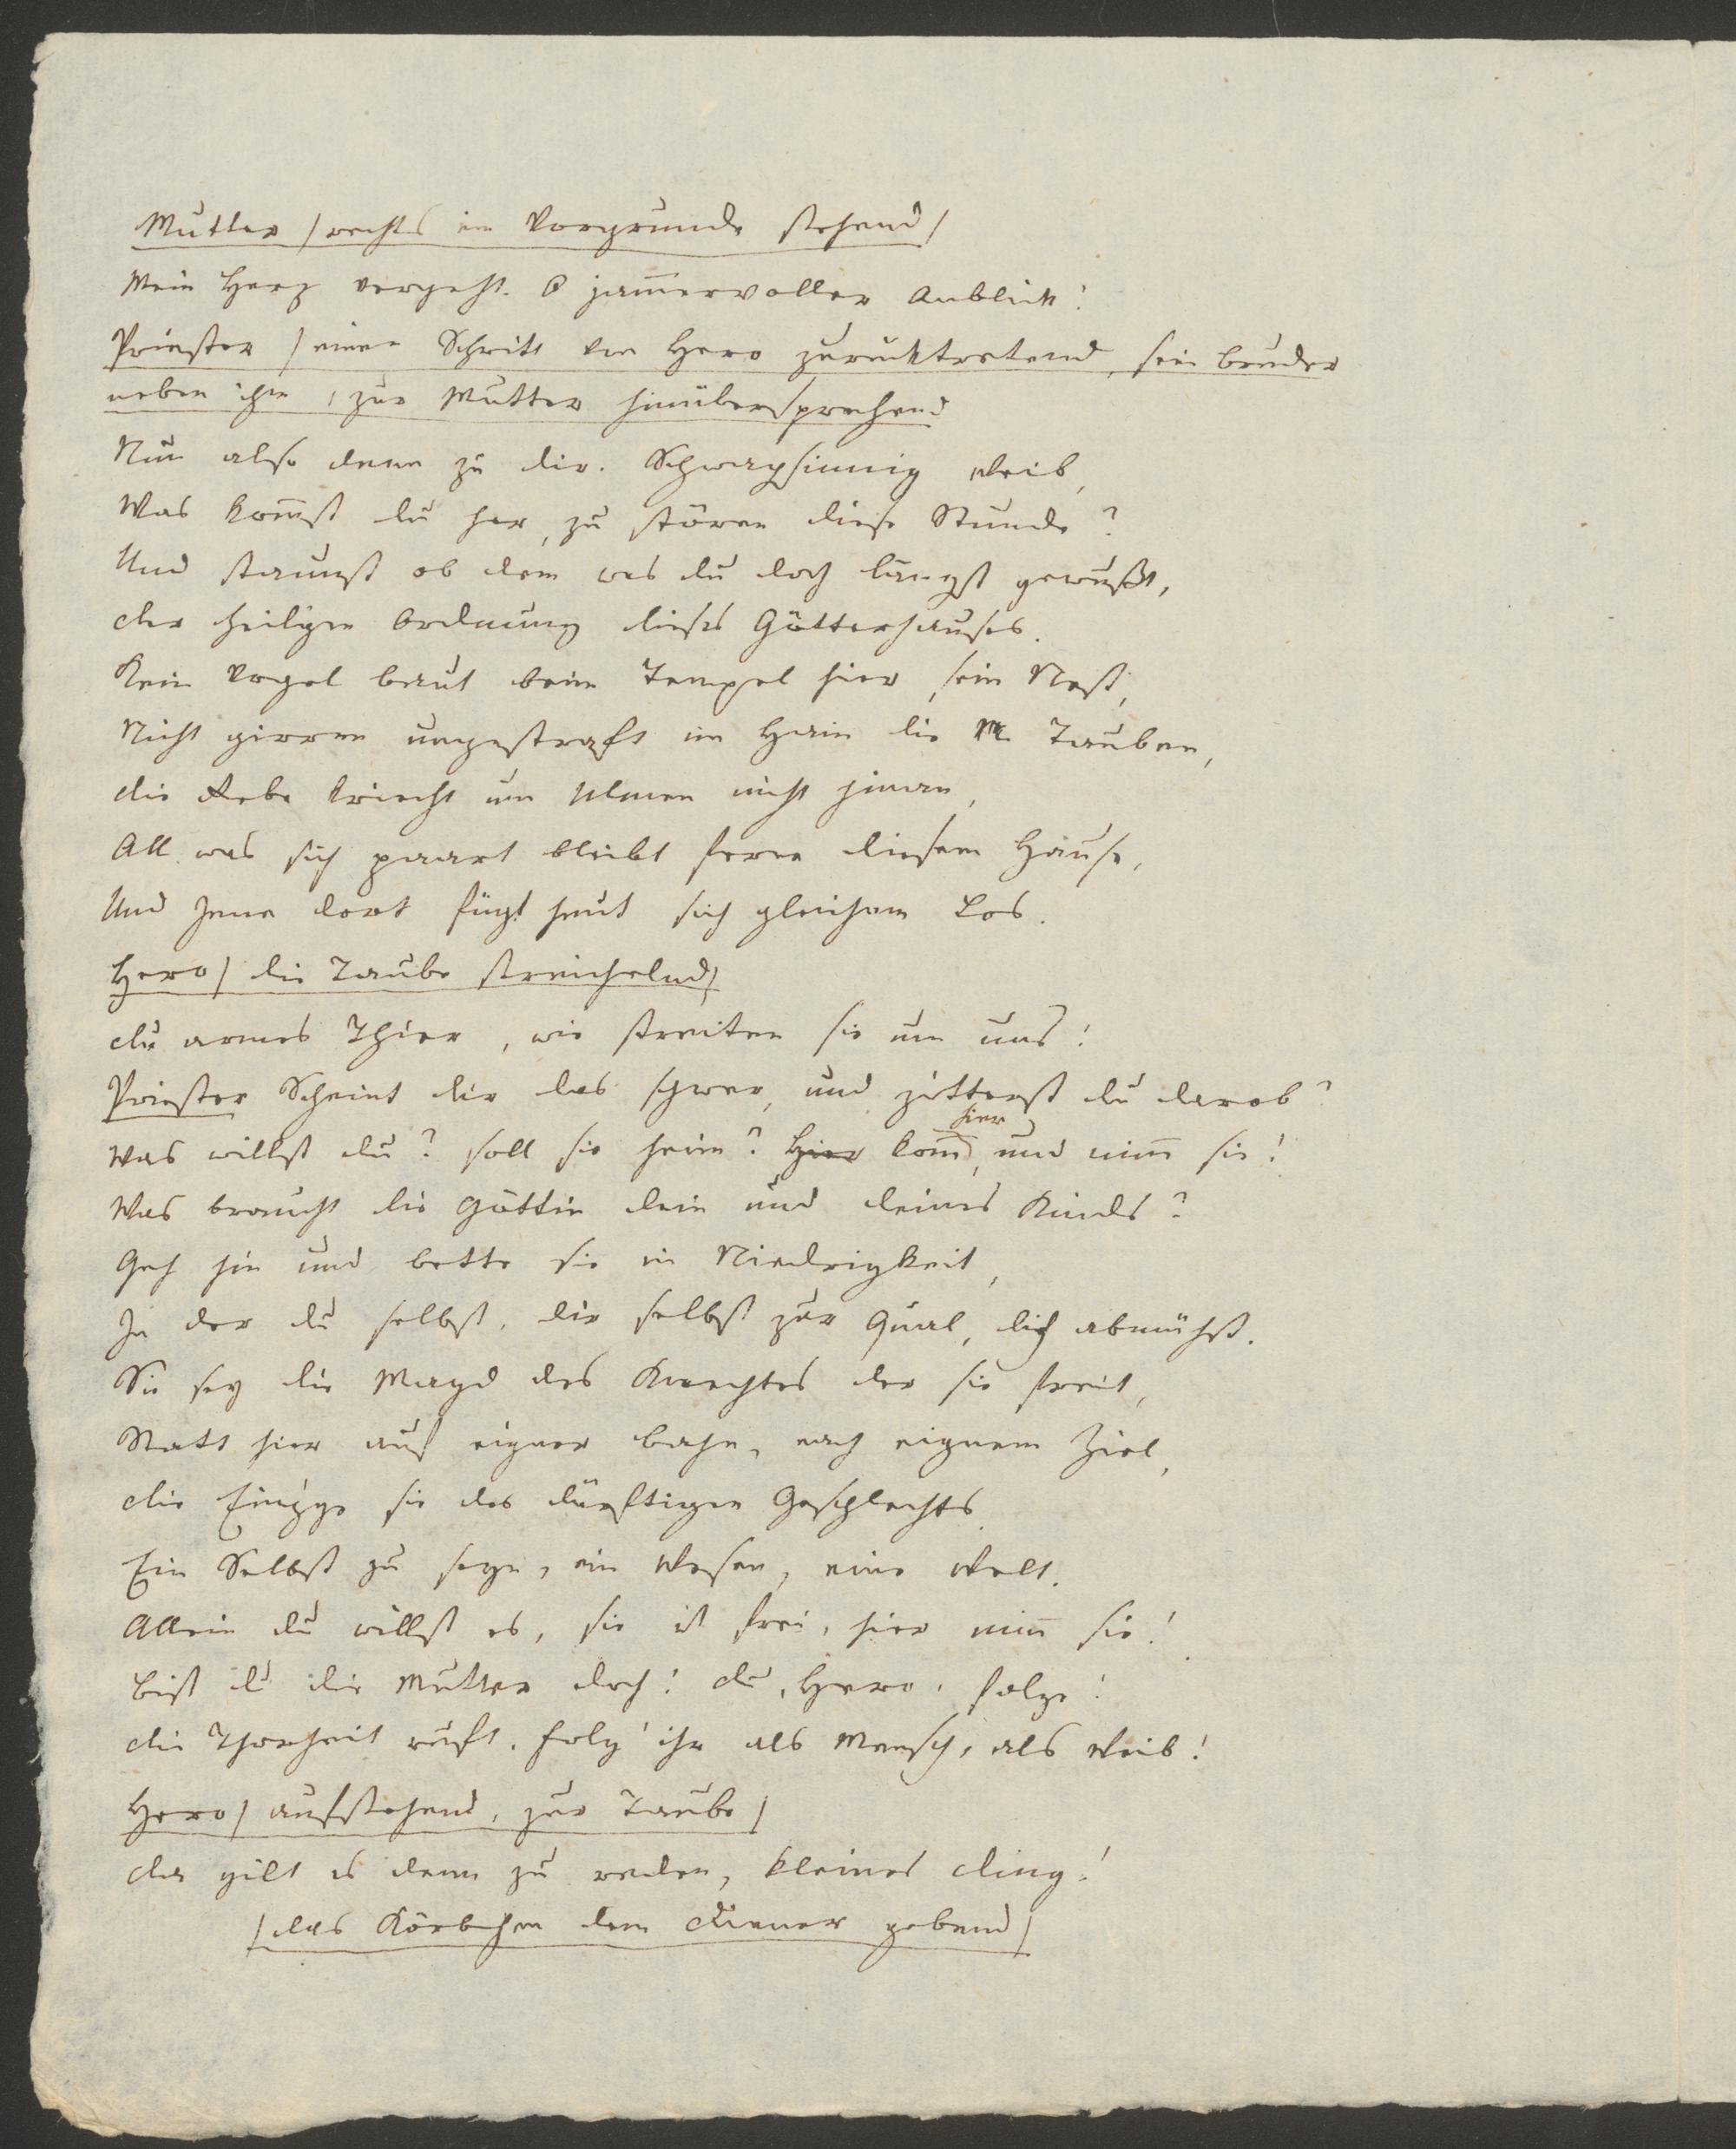 Mutter /rechts im Vorgrunde stehend/
Mein Herz vergeht. O jam̅ervoller Anblick!
Priester / einen Schritt von Hero zurücktretend, sein Bruder
neben ihm, zur Mutter hinübersprechend
Nun also denn zu dir. Schwachsinnig Weib,
Was kom̅st du her, zu stören diese Stunde?
Und staunst ob dem was du doch längst gewußt,
Der heiligen Ordnung dieses Götterhauses.
Kein Vogel baut beim Tempel hier sein Nest,
Nicht girren ungestraft im Hain die Tauben,
Die Rebe kriecht um Ulmen nicht hinan,
All was sich paart bleibt ferne diesem Hause,
Und Jene dort fügt heut sich gleichem Los.
Hero/ die Taube streichelnd/
Du armes Thier, wie streiten sie um uns!
Priester Scheint dir das schwer, und zitterst du darob?
hier
Was willst du? soll sie heim? Hier kom̅, und nim̅ sie!
Was braucht die Göttin dein und deines Kinds?
Geh hin und bette sie in Niedrigkeit,
In der du selbst, dir selbst zur Qual, dich abmühst.
Sie sey die Magd des Knechtes der sie freit,
Statt hier auf eigner Bahn, nach eignem Ziel,
Die Einz'ge sie des dürftigen Geschlechts
Ein Selbst zu seyn, ein Wesen, eine Welt.
Allein du willst es, sie ist frei, hier nim̅ sie!
Bist du die Mutter doch! Du, Hero, folge!
Die Thorheit ruft. Folg' ihr als Mensch, als Weib!
Hero/ aufstehend, zur Taube/
Da gilt es denn zu reden, kleines Ding!
/das Körbchen dem Diener gebend/